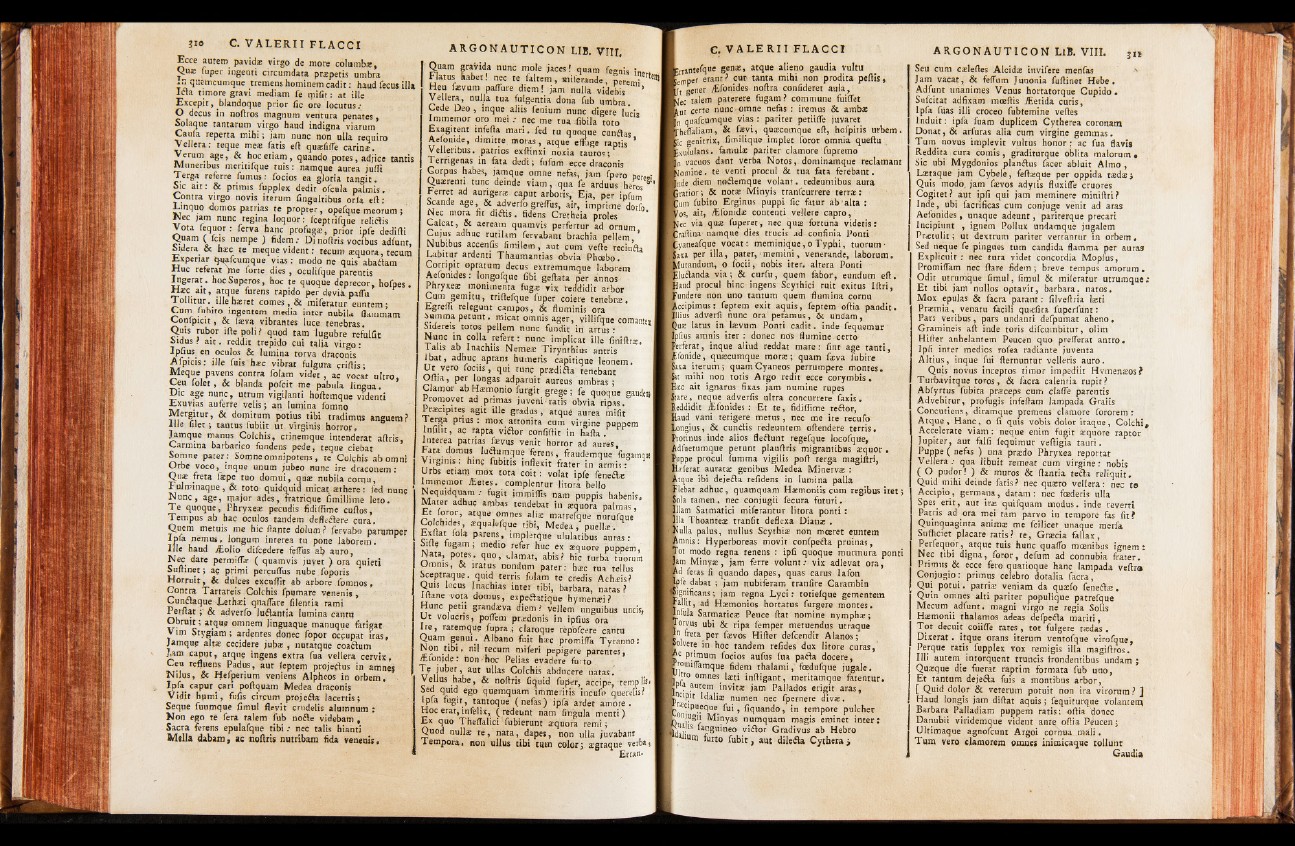 310 C. VALERII FLACCI
Ecce autem pavidæ virgo de more columbæ,
Quæ super ingenti circumdata præpetis umbra
In quemcumque tremens hominem cadit: haud secus illa
Icta timore gravi mediam se misit: at ille
Excepit, blandoque prior sic ore locutus:
O decus in nostros magnum ventura penates,
Solaque tantarum virgo haud indigna viarum
Causa reperta mihi; jam nunc non ulla requiro
Vellera: teque meæ satis est quæsisse carinæ.
Verum age, & hoc etiam, quando potes, adjice tantis
Muneribus meritisque tuis: namque aurea jussi
Terga referre sumus: socios ea gloria tangit.
Sic ait: & primis supplex dedit oscula palmis.
Contra virgo novis iterum singultibus orsa est:
Linquo domos patrias te propter, opesque meorum;
Nec jam nunc regina loquor: sceptrisque relictis
Vota sequor: serva hanc profugæ, prior ipse dedisti
Quam (scis nempe) fidem: Di nostris vocibus adsunt,
Sidera & hæc te meque vident: tecum æquora, tecum
Experiar quascumque vias: modo ne quis abactam
Huc referat me forte dies, oculisque parentis
Ingerat. hoc Superos, hoc te quoque deprecor, hospes.
Hæc ait, atque furens rapido per devia passu
Tollitur. ille hæret comes, & miseratur euntem;
Cum subito ingentem media inter nubila flammam
Conspicit, & sæva vibrantes luce tenebras.
Quis rubor iste poli? quod tam lugubre refulsit
Sidus? ait. reddit trepido cui talia virgo:
Ipsius en oculos & lumina torva draconis
Aspicis: ille suis hæc vibrat fulgura cristis;
Meque pavens contra solam videt, ac vocat ultro,
Ceu solet, & blanda poscit me pabula lingua.
Dic age nunc, utrum vigilanti hostemque videnti
Exuvias auferre velis; an lumina somno
Mergitur, & domitum potius tibi tradimus anguem?
Ille silet; tantus subiit ut virginis horror.
Jamque manus Colchis, crinemque intenderat astris,
Carmina barbarico fundens pede, teque ciebat
Somne pater: Somne omnipotens, te Colchis ab omni
Orbe voco, inque unum jubeo nunc ire draconem:
Quæ freta sæpe tuo domui, quæ nubila cornu,
Fulminaque, & toto quidquid micat æthere: sed nunc
Nunc, age, major ades, fratrique simillime leto.
Te quoque, Phryxeæ pecudis fidissime custos,
Tempus ab hac oculos tandem deflectere cura.
Quem metuis me hic stante dolum? servabo parumper
Ipsa nemus, longum interea tu pone laborem.
Ille haud Æolio discedere fessus ab auro,
Nec dare permissæ (quamvis juvet) ora quieti
Sustinet; ac primi percussus nube soporis
Horruit, & dulces excussit ab arbore somnos.
Contra Tartareis Colchis spumare venenis,
Cunctaque Lethæi quassare silentia rami
Perstat; & adverso luctantia lumina cantu
Obruit: atque omnem linguaque manuque fatigat
Vim Stygiam; ardentes donec sopor occupat iras,
Jamque altæ cecidere jubæ, nutatque coactum
Jam caput, atque ingens extra sua vellera cervix,
Ceu refluens Padus, aut septem projectus in amnes
Nilus, & Hesperium veniens Alpheos in orbem.
Ipsa caput cari postquam Medea draconis
Vidit humi, fusis circum projecta lacertis
Seque suumque simul flevit crudelis alumnum:
Non ego te sera talem sub nocte videbam,
Sacra ferens epulasque tibi: nec talis hianti
Mella dabam, ac nostris nutribam fida venenis.
ARGONAUTICON LIB. VIII.
Quam gravida nunc mole jaces! quam segnis inertem
Flatus habet! nec te saltem, miserande, peremi,
Heu sævum passure diem! jam nulla videbis
Vellera, nulla tua fulgentia dona sub umbra.
Cede Deo, inque aliis senium nunc digere lucis
Immemor oro mei: nec me tua sibila toto
Exagitent infesta mari. sed tu quoque cunctas,
Aesonide, dimitte moras, atque effuge raptis
Velleribus. patrios exstinxi noxia tauros;
Terrigenas in fata dedi; fusum ecce draconis
Corpus habes, jamque omne nefas, jam spero peregi.
Quærenti tunc deinde viam, qua se arduus heros
Ferret ad aurigeræ caput arboris, Eja, per ipsum
Scande age, & adverso gressus, ait, imprime dorso.
Nec mora fit dictis. fidens Cretheia proles
Calcat, & aeream quamvis perfertur ad ornum,
Cujus adhuc rutilam servabant brachia pellem,
Nubibus accensis similem, aut cum veste recincta
Labitur ardenti Thaumantias obvia Phœbo.
Corripit optatum decus extremumque laborem
Aesonides: longosque sibi gestata per annos
Phryxeæ monimenta fugæ vix reddidit arbor
Cum gemitu, tristesque super coiere tenebræ.
Egressi relegunt campos, & fluminis ora
Summa petunt. micat omnis ager, villisque comantem
Sidereis totos pellem nunc fundit in artus:
Nunc in colla refert: nunc implicat ille sinistræ.
Talis ab Inachiis Nemeæ Tirynthius antris
Ibat, adhuc aptans humeris capitique leonem.
Ut vero sociis, qui tunc prædicta tenebant
Ostia, per longas adparuit aureus umbras;
Clamor ab Hæmonio surgit grege; se quoque gaudens
Promovet ad primas juveni ratis obvia ripas.
Præcipites agit ille gradus, atque aurea misit
Terga prius: mox attonita cum virgine puppem
Insilit, ac rapta victor consistit in hasta.
Interea patrias sævus venit horror ad aures,
Fata domus luctumque ferens, fraudemque fugamque
Virginis: hinc subitis inflexit frater in armis:
Urbs etiam mox tota coit: volat ipse senectæ
Immemor Æetes. complentur litora bello
Nequidquam: fugit immissis nam puppis habenis.
Mater adhuc ambas tendebat in æquora palmas,
Et soror, atque omnes aliæ matresque nurusque
Colchides, æqualesque tibi, Medea, puellæ.
Exstat sola parens, impletque ululatibus auras:
Siste fugam; medio refer huc ex æquore puppem,
Nata, potes. quo, clamat, abis? hic turba tuorum
Omnis, & iratus nondum pater: hæc tua tellus
Sceptraque. quid terris solam te credis Achæis?
Quis locus Inachias inter tibi, barbara, natas?
Istane vota domus, expectatique hymenæi?
Hunc petii grandæva diem? vellem unguibus uncis,
Ut volucris, possem prædonis in ipsius ora
Ire, ratemque supra; claroque reposcere cantu
Quam genui. Albano fuit hæc promissa Tyranno:
Non tibi. nil tecum miseri pepigere parentes,
Æsonide: non hoc Pelias evadere furto
Te jubet, aut ullas Colchis abducere natas.
Vellus habe, & nostris siquid super, accipe, templis.
Sed quid ego quemquam immeritis incuso querelis?
Ipsa fugit, tantoque (nefas) ipsa ardet amore.
Hoc erat, infelix, (redeunt nam singula menti)
Ex quo Thessalici subierunt æquora remi;
Quod nullæ te, nata, dapes, non ulla juvabant
Tempora. non ullus tibi tum color; ægraque verba,
Erran-
C. VALERII FLACCI
Errantesque genæ, atque alieno gaudia vultu
Semper erant? cur tanta mihi non prodita pestis,
Ut gener Æsonides nostra consideret aula,
Nec talem paterere fugam? commune fuisset
Aut certe nunc omne nefas: iremus & ambæ
In quascumque vias: pariter petiisse juvaret
Thessaliam, & sævi, quæcumque est, hospitis urbem.
Sic genitrix, similique implet soror omnia questu
Exululans. famulæ pariter clamore supremo
In vacuos dant verba Notos, dominamque reclamant
Nomine. te venti procul & tua fata ferebant.
Inde diem noctemque volant. redeuntibus aura
Gratior; & notæ Minyis transcurrere terræ:
Cum subito Erginus puppi sic fatur ab alta:
Vos, ait, Æsonidæ contenti vellere capro,
Nec via quæ superet, nec quæ fortuna videtis:
Crastina namque dies trucis ad confinia Ponti
Cyaneasque vocat: meminique, o Typhi, tuorum
Saxa per illa, pater, memini, venerande, laborum.
Mutandum, o socii, nobis iter. altera Ponti
Eluctanda via; & cursu, quem fabor, eundum est.
Haud procul hinc ingens Scythici ruit exitus Istri,
Fundere non uno tantum quem flumina cornu
Accipimus: septem exit aquis, septem ostia pandit.
Illius adversi nunc ora petamus, & undam,
Quæ latus in lævum Ponti cadit. inde sequemur
Ipsius amnis iter: donec nos flumine certo
Perferat, inque aliud reddat mare: sint age tanti,
Æsonide, quæcumque moræ; quam sæva subire
Saxa iterum; quam Cyaneos perrumpere montes.
Sat mihi non totis Argo redit ecce corymbis.
Hæc ait ignarus fixas jam numine rupes
Stare, neque adversis ultra concurrere saxis.
Reddidit Æsonides: Et te, fidissime rector,
Haud vani tetigere metus, nec me ire recuso
Longius, & cunctis redeuntem ostendere terris.
Protinus inde alios flectunt regesque locosque,
Adsuetumque petunt plaustris migrantibus æquor.
Puppe procul summa vigilis post terga magistri,
Hæserat auratæ genibus Medea Minervæ:
Atque ibi dejecta residens in lumina palla
Flebat adhuc, quamquam Hæmoniis cum regibus iret;
Sola tamen, nec conjugii secura futuri.
Illam Sarmatici miserantur litora ponti:
Illa Thoanteæ transit deflexa Dianæ.
Nulla palus, nullus Scythiæ non mœret euntem
Amnis: Hyperboreas movit conspecta pruinas,
Tot modo regna tenens: ipsi quoque murmura ponti
Jam Minyæ, jam ferre volunt: vix adlevat ora,
Ad seras si quando dapes, quas carus Iason
Ipse dabat; jam nubiferam transire Carambin
Significans; jam regna Lyci: totiesque gementem
Fallit, ad Hæmonios hortatus surgere montes.
Insula Sarmaticæ Peuce stat nomine nymphæ;
Torvus ubi & ripa semper metuendus utraque
In freta per sævos Hister descendit Alanos;
Solvere in hoc tandem resides dux litore curas,
Ac primum socios ausus sua pacta docere,
Promissamque fidem thalami, fœdusque jugale.
Ultro omnes læti instigant, meritamque fatentur.
Ipsa autem invitæ jam Pallados erigit aras,
Incipit Idaliæ numen nec spernere divæ.
Præcipueque sui, siquando, in tempore pulcher
Conjugii Minyas numquam magis eminet inter:
Qualis sanguineo victor Gradivus ab Hebro
Idalium furto subit, aut dilecta Cythera;
ARGONAUTICON LIB. VIII. 311
Seu cum cælestes Alcidæ invisere mensas
Jam vacat, & fessum Junonia sustinet Hebe.
Adsunt unanimes Venus hortatorque Cupido.
Suscitat adfixam mœstis Æetida curis,
Ipsa suas illi croceo subtemine vestes
Induit: ipsa suam duplicem Cytherea coronam
Donat, & arsuras alia cum virgine gemmas.
Tum novus implevit vultus honor: ac sua flavis
Reddita cura comis, graditurque oblita malorum.
Sic ubi Mygdonios planctus sacer abluit Almo,
Lætaque jam Cybele, festæque per oppida tædæ;
Quis modo jam sævos adytis fluxisse cruores
Cogitet? aut ipsi qui jam meminere ministri?
Inde, ubi sacrificas cum conjuge venit ad aras
Aesonides, unaque adeunt, pariterque precari
Incipiunt, ignem Pollux undamque jugalem
Prætulit; ut dextrum pariter vertantur in orbem.
Sed neque se pingues tum candida flamma per auras
Explicuit: nec tura videt concordia Mopsus,
Promissam nec stare fidem; breve tempus amorum.
Odit utrumque simul, simul & miseratur utrumque:
Et tibi jam nullos optavit, barbara, natos.
Mox epulas & sacra parant: silvestria læti
Præmia, venatu facili quæsita supersunt:
Pars veribus, pars undanti despumat aheno.
Gramineis ast inde toris discumbitur, olim
Hister anhelantem Peucen quo presserat antro.
Ipsi inter medios rosea radiante juventa
Altius, inque sui sternuntur velleris auro.
Quis novus inceptos timor impediit Hymenæos?
Turbavitque toros, & sacra calentia rupit?
Absyrtus subita præceps cum classe parentis
Advehitur, profugis infestam lampada Graiis
Concutiens, diramque premens clamore sororem:
Atque, Hanc, o si quis vobis dolor iraque, Colchi,
Accelerate viam: neque enim fugit æquore raptor
Jupiter, aut falsi sequimur vestigia tauri.
Puppe (nefas) una prædo Phryxea reportat
Vellera: qua libuit remeat cum virgine: nobis
(O pudor!) & muros & stantia tecta reliquit.
Quid mihi deinde satis? nec quæro vellera: nec te
Accipio, germana, datam: nec fœderis ulla
Spes erit, aut iræ quisquam modus. inde reverti
Patris ad ora mei tam parvo in tempore fas sit?
Quinquaginta animæ me scilicet unaque mersa
Sufficiet placare ratis? te, Græcia fallax,
Persequor, atque tuis hunc quasso mœnibus ignem:
Nec tibi digna, soror, desum ad connubia frater.
Primus & ecce fero quatioque hanc lampada vestro
Conjugio: primus celebro dotalia sacra,
Qui potui. patriæ veniam da quæso senectæ.
Quin omnes alti pariter populique patresque
Mecum adsunt. magni virgo ne regia Solis
Hæmonii thalamos adeas despecta mariti,
Tot decuit coiisse rates, tot fulgere tædas.
Dixerat. itque orans iterum ventosque virosque,
Perque ratis supplex vox remigis illa magistros.
Illi autem intorquent truncis frondentibus undam;
Quæque die fuerat raptim formata sub uno,
Et tantum dejecta suis a montibus arbor,
[Quid dolor & veterum potuit non ira virorum?]
Haud longis jam distat aquis; sequiturque volantem
Barbara Palladiam puppem ratis: ostia donec
Danubii viridemque vident ante ostia Peucen;
Ultimaque agnoscunt Argoi cornua mali.
Tum vero clamorem omnes inimicaque tollunt
Gaudia